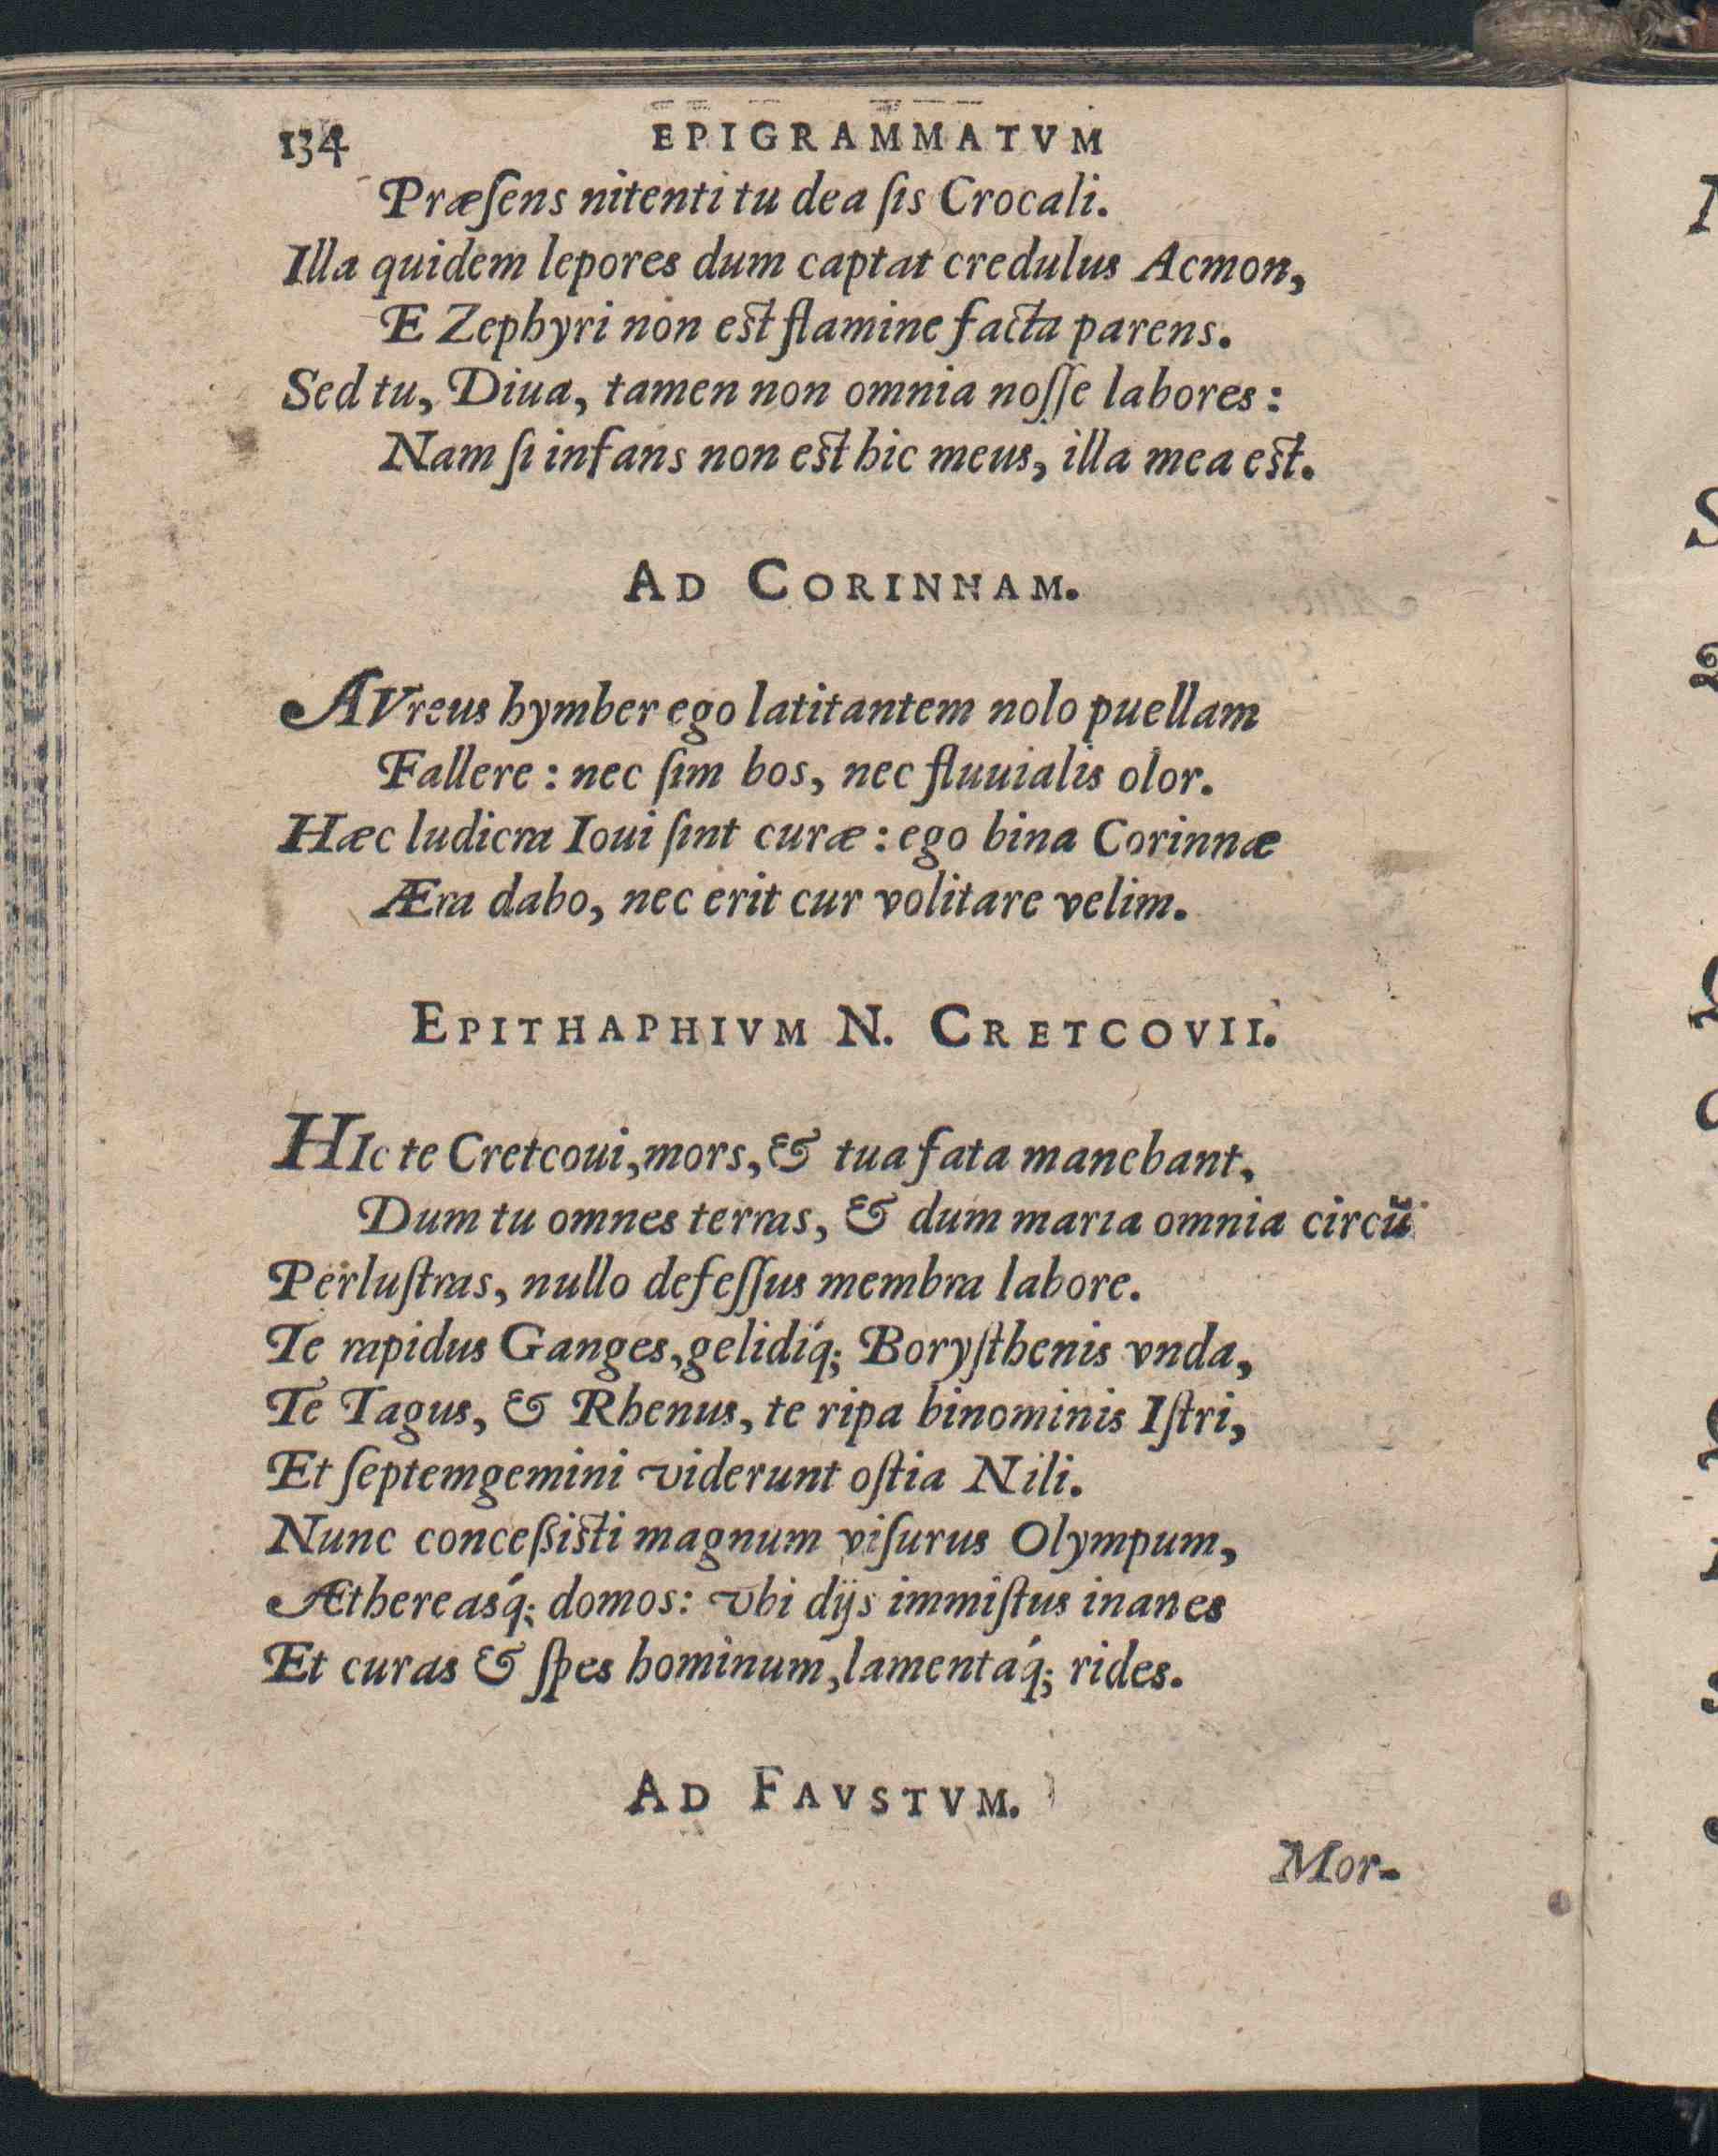 134 EPIGRAMMATVM
Præſens nitenti tu dea ſis Crocali.
Illa quidem lepores dum captat credulus Acmon,
E Zephyri non est flamine facta parens.
Sed tu, Diua, tamen non omnia noſſe labores:
Nam ſi infans non est hic meus, illa mea est.
AD CORINNAM.
AVreus hymber ego latitantem nolo puellam
Fallere: nec ſim bos, nec fluuialis olor.
Hæc ludicra Ioui ſint curæ: ego bina Corinnæ
Æra dabo, nec erit cur volitare velim.
EPITHAPHIVM N. CRETCOVII.
HIc te Cretcoui, mors, & tua fata manebant,
Dum tu omnes terras, & dum maria omnia circũ
Perluſtras, nullo defeſſus membra labore.
Te rapidus Ganges, gelidíq; Boryſthenis vnda,
Te Tagus, & Rhenus, te ripa binominis Iſtri,
Et ſeptemgemini viderunt oſtia Nili.
Nunc conceßisti magnum viſurus Olympum,
Æthereasq́; domos: vbi dijs immiſtus inanes
Et curas & ſpes hominum, lamentáq; rides.
AD FAVSTVM.
Mor-